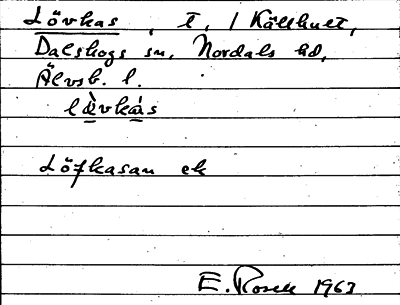 Lövkas, t, / Källhult,
Dalskogs sn, Nordals hd,
Älvsb. l.
Löfkasan ek
E. Rosell 1963